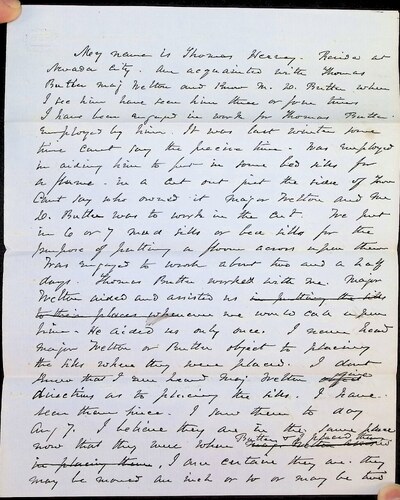 My name is Thomas Hersey. Reside at
Nevada City. Am acquainted with Thomas
Butler Maj Welton and know M. D. Butler when
I see him have seen him three or four times
I have been engaged in work for Thomas Butler.
employed by him. It was last winter some
time cannt say the precise time. Was employed
in aiding him to put in some bed sills for
a flume. in a cut out just the side of Town
Cant say who owned it Major Welton and M
D. Butler was to work in the Cut. We put
in 6 or 7 mud sills or bed sills for the
purpose of putting a flume across upon them
Was engaged to work about two and a half
days. Thomas Butler worked with me. Major
Welton aided and assisted us in putting the sills
to their places whenever we would call upon
him - He aided us only once. I never heard
Major Welton or Butler object to placing
the sills where they were placed. I dont
know that I ever heard Maj Welton object give
directions as to placing the sills. I have
seen them since. I saw them to day
Aug 7. I believe they are in the same place
now that they were when Butler & I placed them
in placing them, I am certain they are. they
may be moved an inch or so or may be two